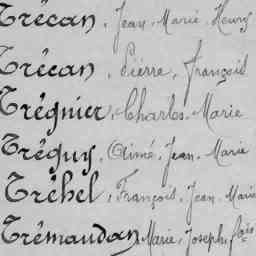 Trécan, Jean Marie Henry
Trécan, Pierre, François
Trégnier, Charles Marie
Tréguy, Aimé, Jean, Marie
Tréhel, François, Jean Marie
Trémaudan, Marie, Joseph, fois